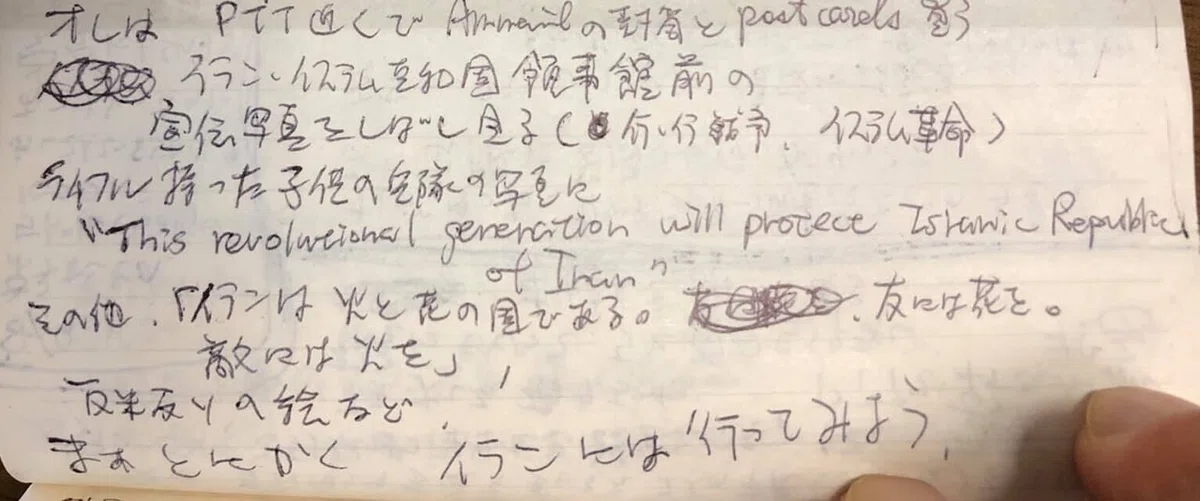 オレは PTT 近くで Airmailの封筒と postcards 買う
イラン・イスラム共和国 領事館前の
宣伝写真をしばし見る(, イスラム革命)
ライフル持った子供の兵隊の写真に
"This revolutional generation will protect Islanic Republic
of Iran"
その他、「イランは 火と花の国である。 友には花を。
敵には火を」,
反米反ソの絵など.
まあ とにかく イランには 行ってみよう.